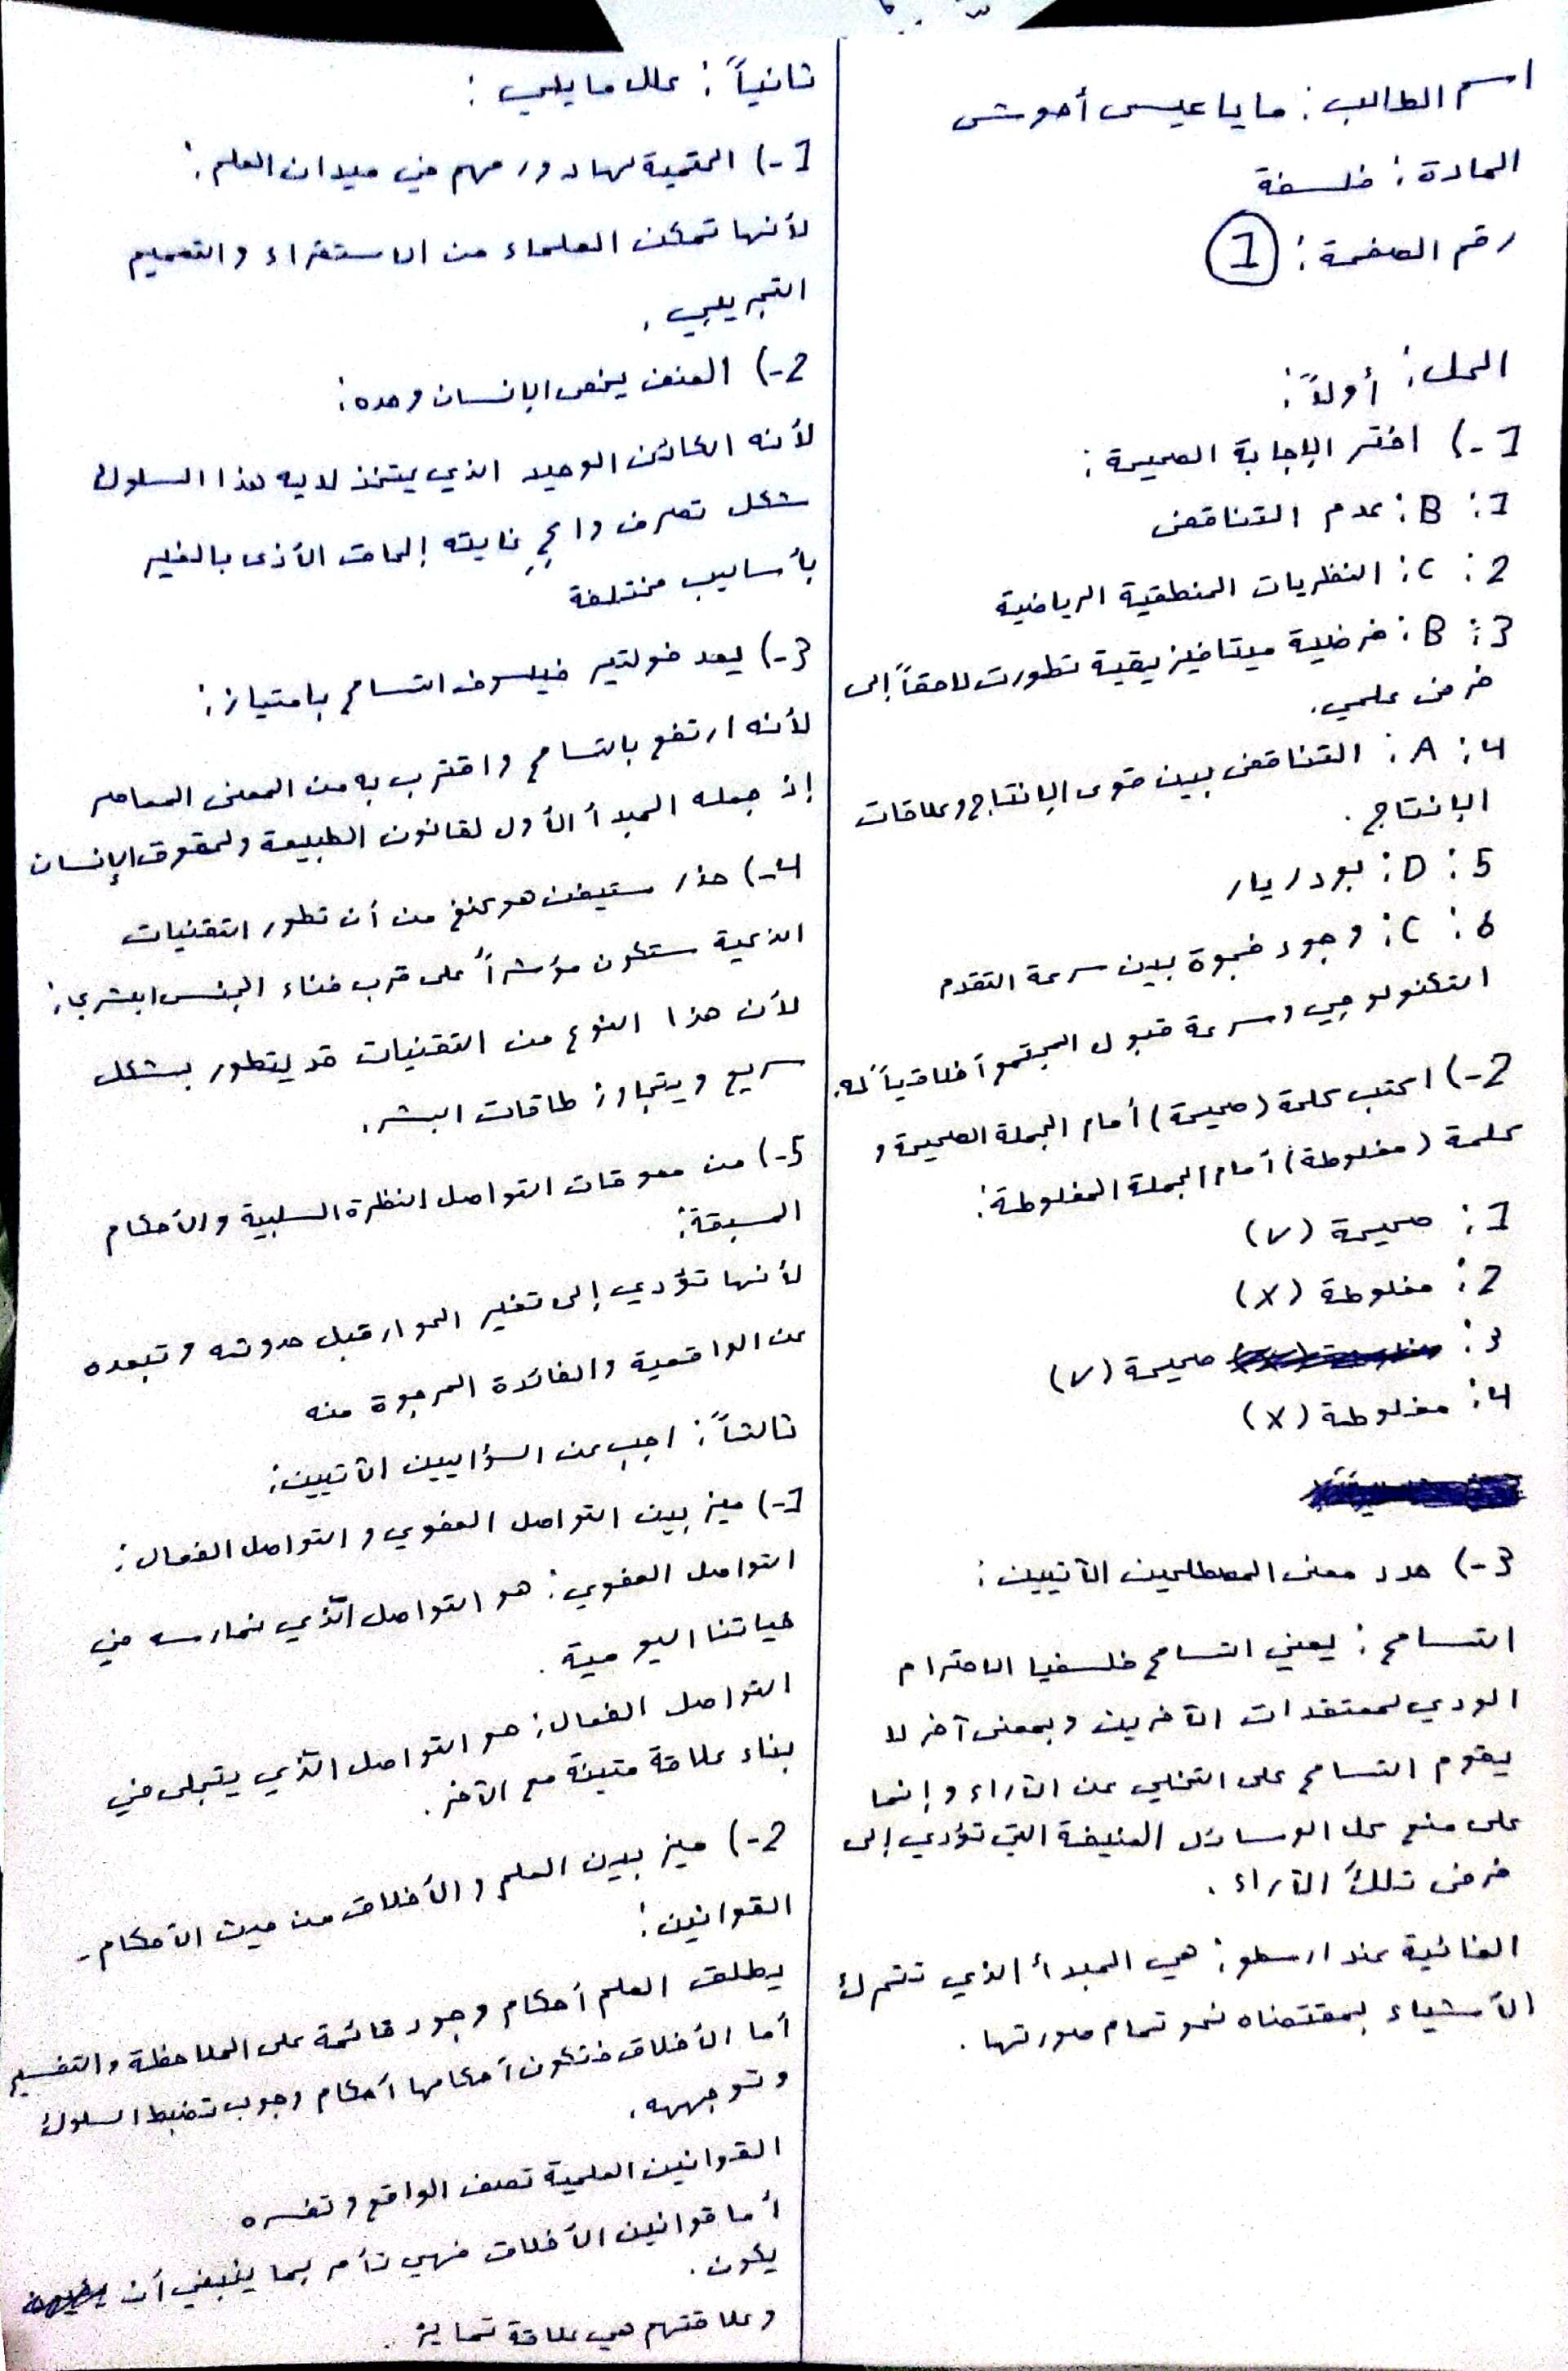 اسم الطالب: مايا عيسى أحوش
المادة: فلسفة
رقم الصفحة: 1
الحل: أولاً:
1-) اختر الإجابة الصحيحة:
1: B: عدم التناقض
2: C: النظريات المنطقية الرياضية
3: B: فرضية ميتافيزيقية تطورت لاحقاً إلى
فرض علمي.
4: A: التناقض بين قوى الإنتاج وعلاقات
الإنتاج.
5: D: بودريار
6: C: وجود فجوة بين سرعة التقدم
التكنولوجي وسرعة قبول المجتمع أخلاقياً له.
2-) اكتب كلمة (صحيحة) أمام الجملة الصحيحة و
كلمة (مغلوطة) أمام الجملة المغلوطة:
1: صحيحة (✓)
2: مغلوطة (X)
3: صحيحة (✓)
4: مغلوطة (X)
3-) حدد معنى المصطلحين الآتيين:
التسامح: يعني التسامح فلسفيا الاحترام
الودي لمعتقدات الآخرين وبمعنى آخر لا
يقوم التسامح على التخلي عن الآراء وإنما
على منع كل الوسائل العنيفة التي تؤدي إلى
فرض تلك الآراء.
الغائية عند ارسطو: هي المبدأ الذي تتحرك
الأشياء بمقتضاه نحو تمام صورتها.
ثانياً: علل ما يلي:
1-) الحتمية لها دور مهم في ميدان العلم:
لأنها تمكن العلماء من الاستقراء والتعميم
التجريبي.
2-) العنف يخص الإنسان وحده:
لأنه الكائن الوحيد الذي يتخذ لديه هذا السلوك
شكل تصرف واعٍ غايته إلحاق الأذى بالغير
بأساليب مختلفة
3-) يعد فولتير فيلسوف التسامح بامتياز:
لأنه ارتفع بالتسامح واقترب به من المعنى المعاصر
إذ جعله المبدأ الأول لقانون الطبيعة ولحقوق الإنسان
4-) حذر ستيفن هوكنغ من أن تطور التقنيات
الذكية ستكون مؤشراً على قرب فناء الجنس البشري:
لأن هذا النوع من التقنيات قد يتطور بشكل
سريع ويتجاوز طاقات البشر.
5-) من معوقات التواصل النظرة السلبية والأحكام
المسبقة:
لأنها تؤدي إلى تغير الحوار قبل حدوثه وتبعده
عن الواقعية والفائدة المرجوة منه
ثالثاً: اجب عن السؤاليين الآتيين:
1-) ميز بين التواصل العفوي والتواصل الفعال:
التواصل العفوي: هو التواصل الذي نمارسه في
حياتنا اليومية.
التواصل الفعال: هو التواصل الذي يتجلى في
بناء علاقة متينة مع الآخر.
2-) ميز بين العلم والأخلاق من حيث الأحكام -
القوانين:
يطلق العلم أحكام وجود قائمة على الملاحظة والتفسير
أما الأخلاق فتكون أحكامها أحكام وجوب تضبط السلوك
وتوجهه.
القوانين العلمية تصف الواقع وتفسره
أما قوانين الأخلاق فهي تأمر بما ينبغي أن
يكون.
وعلاقتهم هي علاقة تمايز.